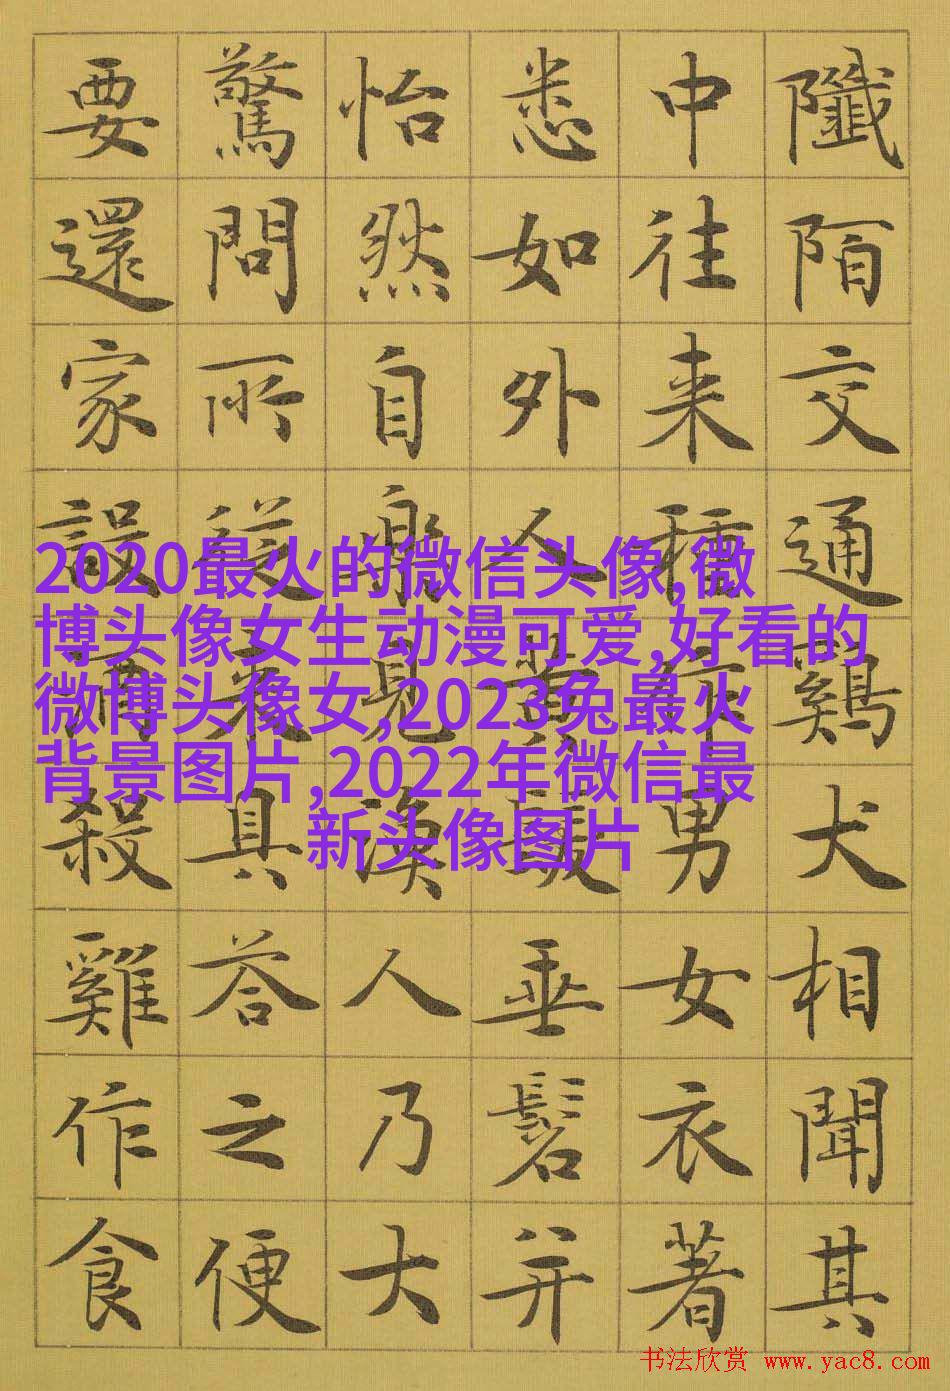 陌交通鷄犬相聞其
中往来種作男女衣著
悉如外人黄髮垂髫并
怡然自樂見漁人乃大
驚問所從来具答之便
要還家設酒殺雞作食
2020最火的微信头像,微
博头像女生动漫可爱,好看的
微博头像女,2023兔最火
背景图片,2022年微信最
新头像图片
书法欣赏 www.yac8.com